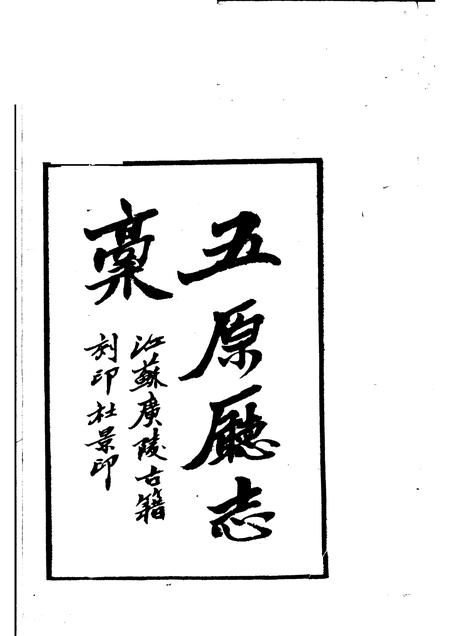 五原廳志
稾
江蘇廣陵古籍
刻印社景印